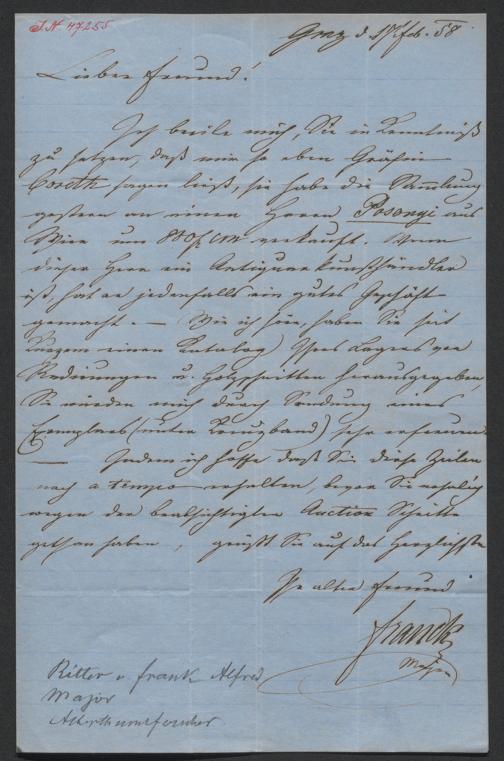 I.N. 47255
Graz d. 17/feb. 58
Lieber Freund!
Ich beeile mich, Sie in Kenntniß
zu setzen, daß mir so eben Gräfin
Coreth sagen ließ, sie habe die Sammlung
gestern an einen Herrn Posonyi aus
Wien um 800f CM verkauft. Wenn
dieser Herr ein Antiquarkunsthändler
ist, hat er jedenfalls ein gutes Geschäft
gemacht. — Wie ich höre, haben Sie seit
Kurzem einen Katalog Ihres Lagers von
Radirungen u. Holzschnitten herausgegeben
Sie würden mich durch Sendung eines
Exemplares (unter Kreuzband) sehr erfreuen
— Indem ich hoffe daß Sie diese Zeilen
noch a tempo erhalten, bevor Sie
wegen der beabsichtigten Auction Schritte
gethan haben, grüßt Sie auf das Herzlichste
Ihr alter Freund
Franck
Major
Ritter v. Frank Alfred
Major
Alterthumsforscher